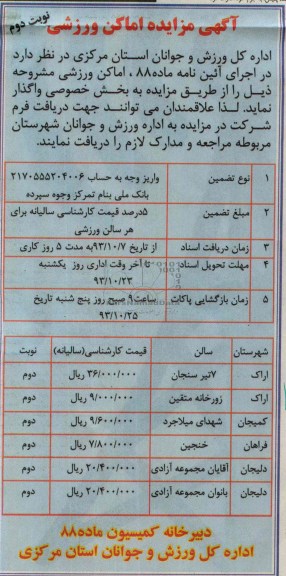 آگهی مزایده اماکن ورزشی
نوبت دوم
اداره کل ورزش و جوانان استان مرکزی در نظر دارد
در اجرای آئین نامه ماده۸۸ ، اماکن ورزشی مشروحه
ذیل را از طریق مزایده به بخش خصوصی واگذار
نماید. لذا علاقمندان می توانند جهت دریافت فرم
شرکت در مزایده به اداره ورزش و جوانان شهرستان
مربوطه مراجعه و مدارک لازم را دریافت نمایند.
۱ نوع تضمین واریز وجه به حساب ۲۱۷۰۵۵۵۲۰۴۰۰۶
بانک ملی بنام تمرکز وجوه سپرده
۲ مبلغ تضمین ۵درصد قیمت کارشناسی سالیانه برای
هر سالن ورزشی
۳ زمان دریافت اسناد از تاریخ ۹۳/۱۰/۷به مدت ۵ روز کاری
۴ مهلت تحویل اسناد تا آخر وقت اداری روز یکشنبه
۹۳/۱۰/۲۳
۵ زمان بازگشایی پاکات ساعت۹ صبح روز پنج شنبه تاریخ
۹۳/۱۰/۲۵
شهرستان سالن قیمت کارشناسی(سالیانه) نوبت
اراک ۷تیر سنجان ۳۶/۰۰۰/۰۰۰ ریال دوم
اراک زورخانه متقین ۹/۰۰۰/۰۰۰ ریال دوم
کمیجان شهدای میلاجرد ۹/۶۰۰/۰۰۰ ریال دوم
فراهان خنجین ۷/۸۰۰/۰۰۰ ریال دوم
دلیجان آقایان مجموعه آزادی ۲۰/۴۰۰/۰۰۰ ریال دوم
دلیجان بانوان مجموعه آزادی ۲۰/۴۰۰/۰۰۰ ریال دوم
دبیرخانه کمیسیون ماده۸۸
اداره کل ورزش و جوانان استان مرکزی